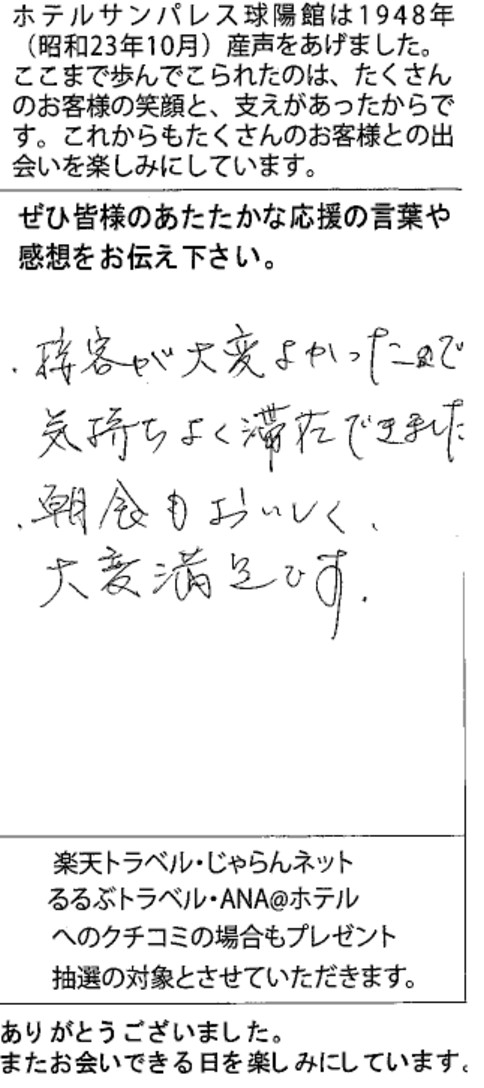 ホテルサンパレス球陽館は1948年
（昭和23年10月）産声をあげました。
ここまで歩んでこられたのは、たくさん
のお客様の笑顔と、支えがあったからで
す。これからもたくさんのお客様との出
会いを楽しみにしています。
ぜひ皆様のあたたかな応援の言葉や
感想をお伝え下さい。
・接客が大変よかったので
気持ちよく滞在できました
・朝食もおいしく、
大変満足です.
楽天トラベル・じゃらんネット
るるぶトラベル・ANA@ホテル
へのクチコミの場合もプレゼント
抽選の対象とさせていただきます。
ありがとうございました。
またお会いできる日を楽しみにしています。